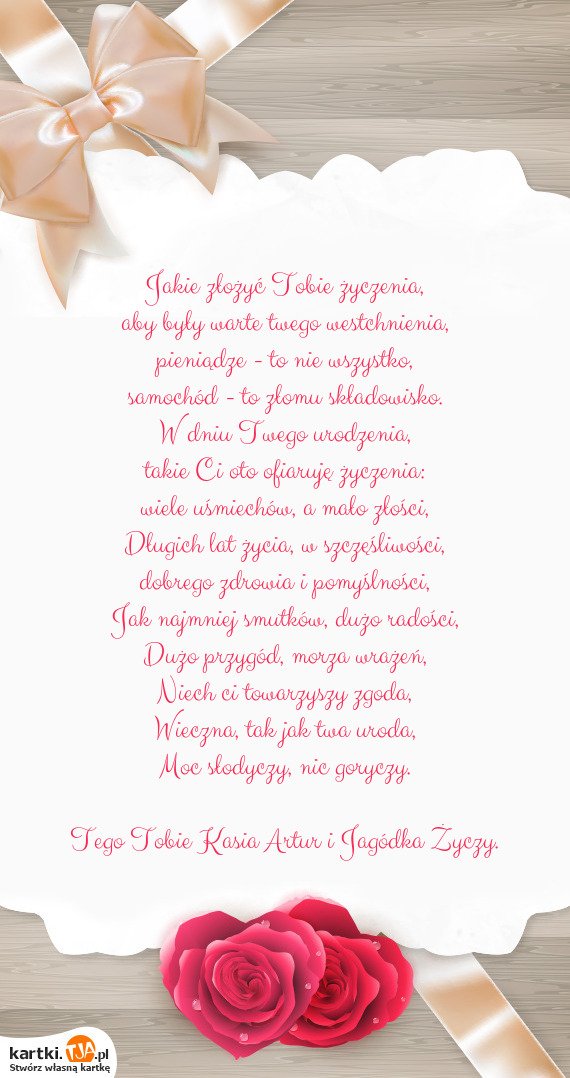 Jakie złożyć Tobie życzenia,
aby były warte twego westchnienia,
pieniądze - to nie wszystko,
samochód - to złomu składowisko.
W dniu Twego urodzenia,
takie Ci oto ofiaruję życzenia:
wiele uśmiechów, a mało złości,
Długich lat życia, w szczęśliwości,
dobrego zdrowia i pomyślności,
Jak najmniej smutków, dużo radości,
Dużo przygód, morza wrażeń,
Niech ci towarzyszy zgoda,
Wieczna, tak jak twa uroda,
Moc słodyczy, nic goryczy.
Tego Tobie Kasia Artur i Jagódka Życzy.
kartki.TJA.pl
Stwórz własną kartkę